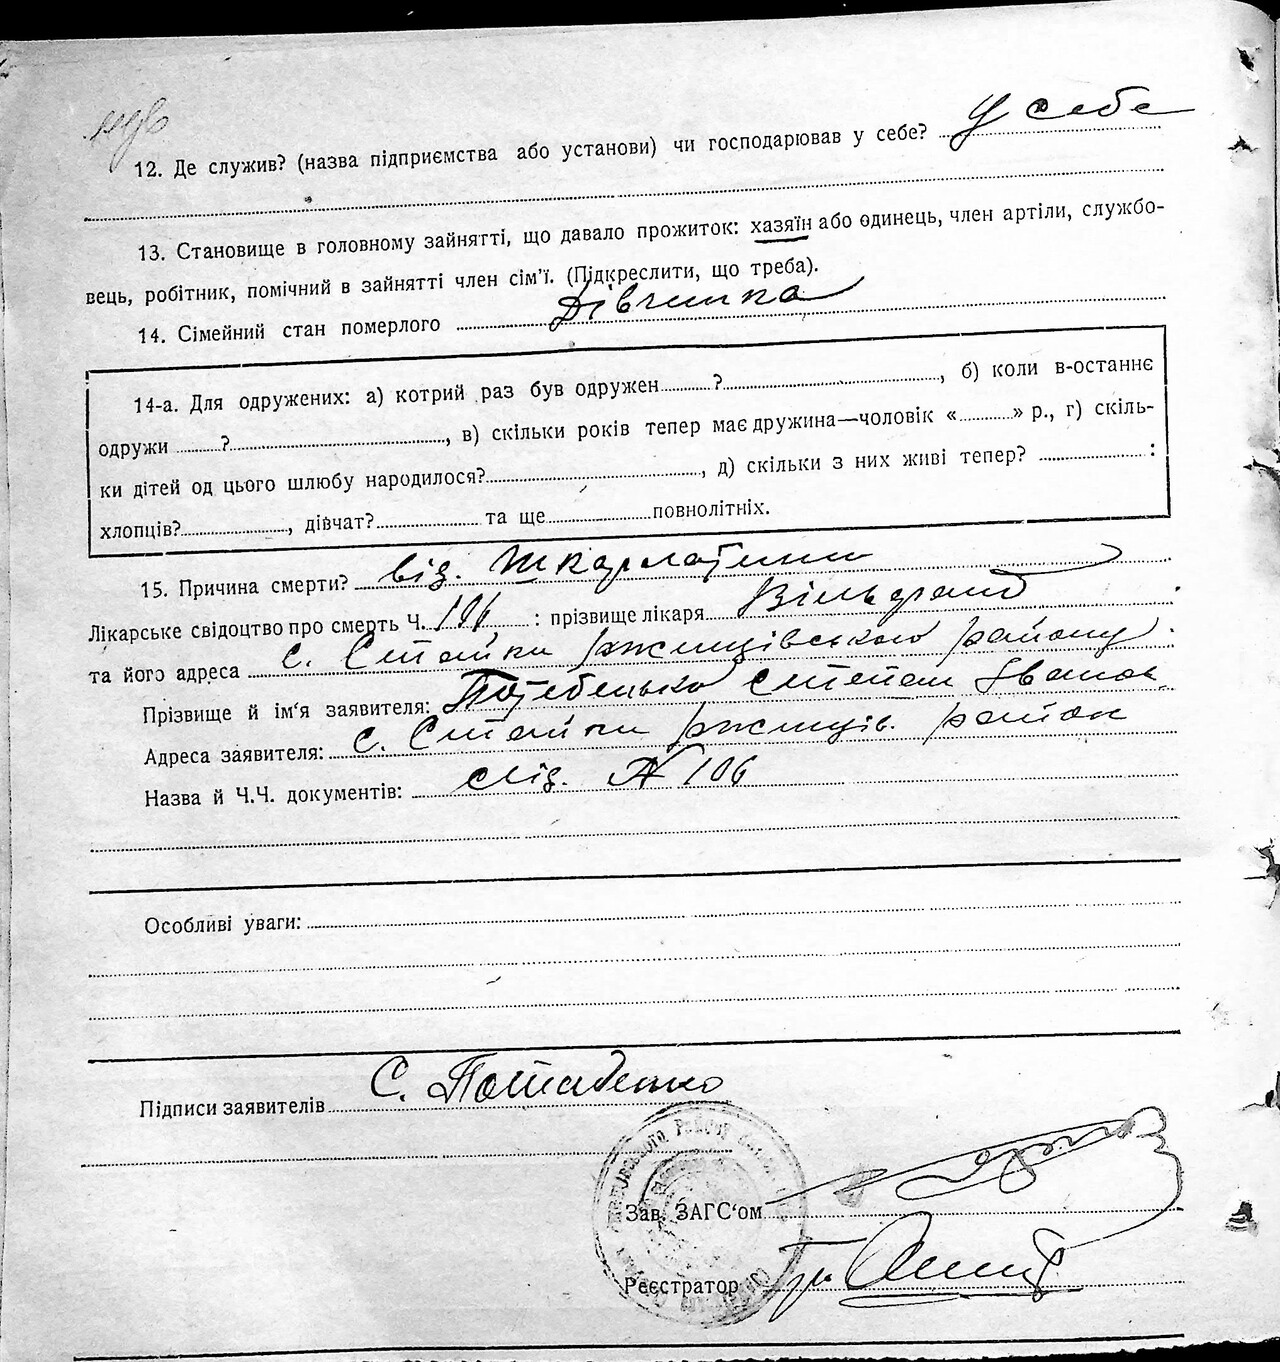 12. Де служив? (назва підприємства або установи) чи господарював у себе? у себе
13. Становище в головному зайнятті, що давало прожиток: хазяїн або одинець, член артіли, службо-
вець, робітник, помічний в зайнятті член сім'ї. (Підкреслити, що треба).
14. Сімейний стан померлого Дівчинка
14-а. Для одружених: а) котрий раз був одружен ? , б) коли в-останнє
одружи ? , в) скільки років тепер має дружина—чоловік « » р., г) скіль-
ки дітей од цього шлюбу народилося? , д) скільки з них живі тепер? :
хлопців? , дівчат? та ще повнолітніх.
15. Причина смерти? від. Шкарлатини
Лікарське свідоцтво про смерть Ч. 106 : прізвище лікаря
та його адреса с. Стайки ржищівського району
Прізвище й ім'я заявителя: Потебенько Степан Іванов.
Адреса заявителя: с. Стайки ржищів. район
Назва й Ч.Ч. документів: свід. № 106
Особливі уваги:
Підписи заявителів С. Потебенко
Зав. ЗАГС'ом
Реєстратор